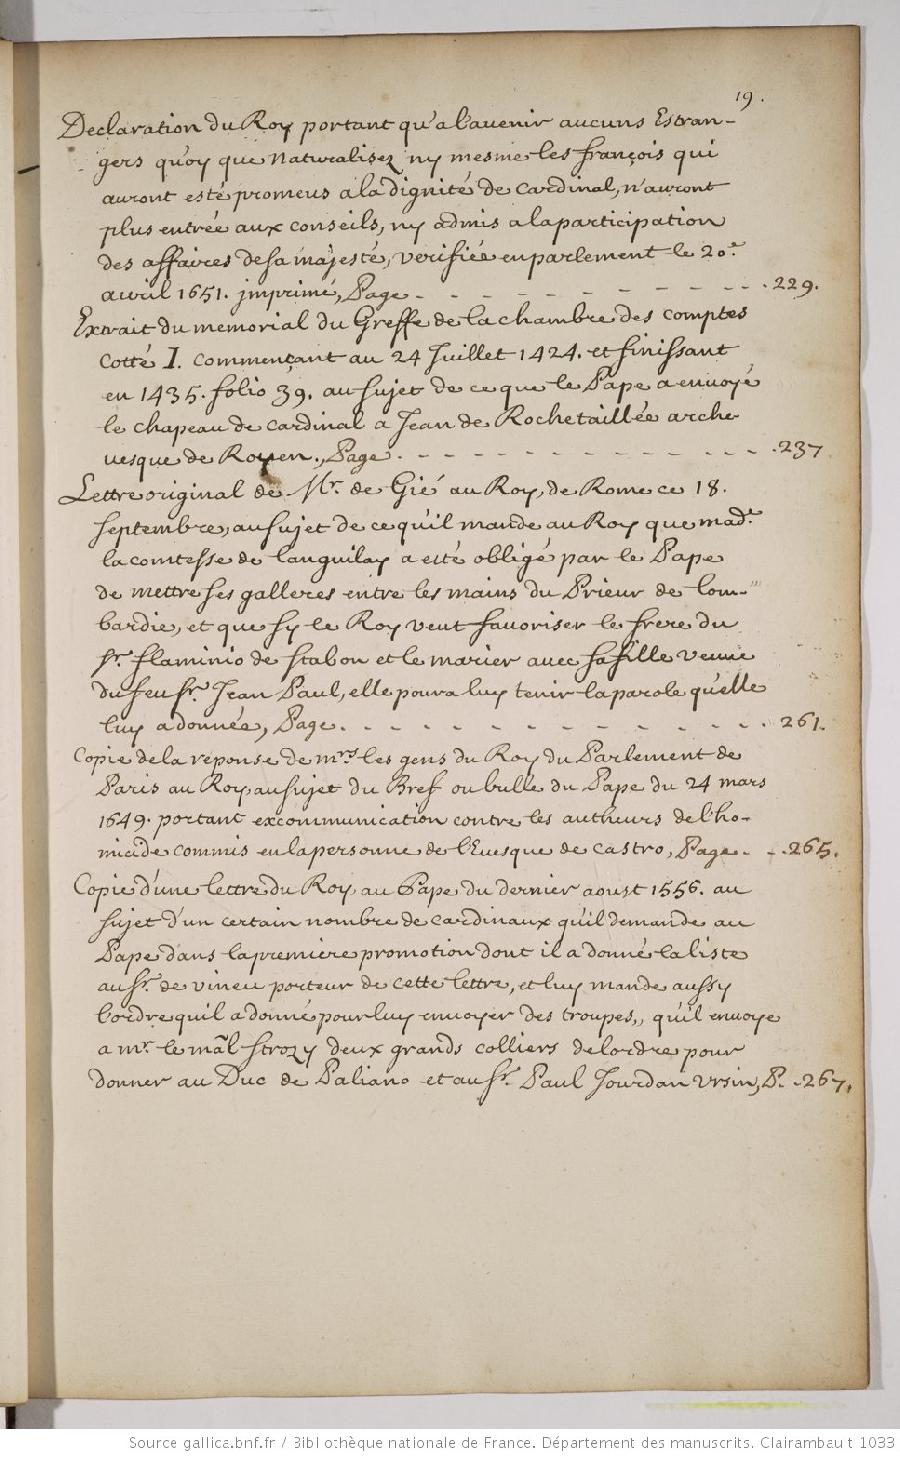 19.
Declaration du Roy portant qu'a l'auenir aucuns Estran-
gers quoy que Naturalisez ny mesme les françois qui
auront esté promeus a la dignité de Cardinal, n'auront
plus entrée aux conseils, ny admis a la participation
des affaires de sa majesté, verifiée en parlement le 20.e
avril 1651. jmprimé, Page - - - - - - - - - - - 229.
Extrait du memorial du Greffe de la chambre des comptes
cotté I. commençant au 24 Juillet 1424. et finissant
en 1435. folio 39. au sujet de ce que le Pape a enuoyé
le chapeau de cardinal a Jean de Rochetaillée arche
uesque de Rouen., Page - - - - - - - - - - - 237
Lettre original de Mr. de Gié au Roy, de Rome ce 18.
septembre, au sujet de ce qu'il mande au Roy que mad.e
la comtesse de Languilay a esté obligé par le Pape
de mettre ses galleres entre les mains du Prieur de Lom-
bardie, et que sy le Roy veut fauoriser le frere du
Sr. flaminio de stabon et le marier auec sa fille veuue
du feu Sr. Jean Paul, elle poura luy tenir la parole qu'elle
luy a donnée, Page. - - - - - - - - - - - 261.
Copie de la reponse de mrs les gens du Roy du Parlement de
Paris au Roy au sujet du Bref ou bulle du Pape du 24 mars
1649. portant excommunication contre les autheurs de l'ho-
micide commis en la personne de l'Euesque de Castro, Page. - - 265.
Copie d'une lettre du Roy au Pape du dernier aoust 1556. au
sujet d'un certain nombre de cardinaux qu'il demande au
Pape dans la premiere promotion dont il a donné la liste
au Sr. de vineu porteur de cette lettre, et luy mande aussy
l'ordre qu'il a donné pour luy enuoyer des troupes,, qu'il enuoye
a mr. le mãl strozy deux grands colliers de l'ordre pour
donner au Duc de Paliano et au Sr. Paul Jourdan vrsin, P. - 267.
Source gallica.bnf.fr / Bibliothèque nationale de France. Département des manuscrits. Clairambault 1033